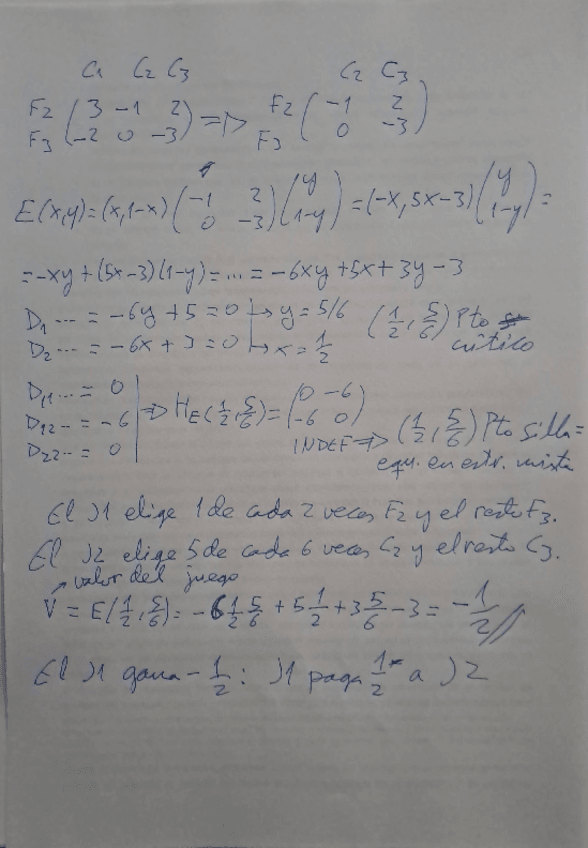 C1 C2 C3 C2 C3
F2 ( 3 -1 2 ) => F2 ( -1 2 )
F3 ( -2 0 -3 ) F3 ( 0 -3 )
E(x,y) = (x, 1-x) ( -1 2 ; 0 -3 ) ( y ; 1-y ) = (-x, 5x-3) ( y ; 1-y ) =
= -xy + (5x-3)(1-y) = ... = -6xy + 5x + 3y - 3
D1 ... = -6y + 5 = 0 → y = 5/6 (1/2, 5/6) Pto
D2 ... = -6x + 3 = 0 → x = 1/2 crítico
D11 ... = 0
D12 .. = -6 => HE(1/2, 5/6) = ( 0 -6 ; -6 0 )
INDEF => (1/2, 5/6) Pto silla =
D22 .. = 0
equ. en estr. mixta
El J1 elige 1 de cada 2 veces F2 y el resto F3.
El J2 elige 5 de cada 6 veces C2 y el resto C3.
→ valor del juego
V = E(1/2, 5/6) = -6 1/2 5/6 + 5 1/2 + 3 5/6 - 3 = -1/2 //
El J1 gana -1/2 : J1 paga 1/2 a J2